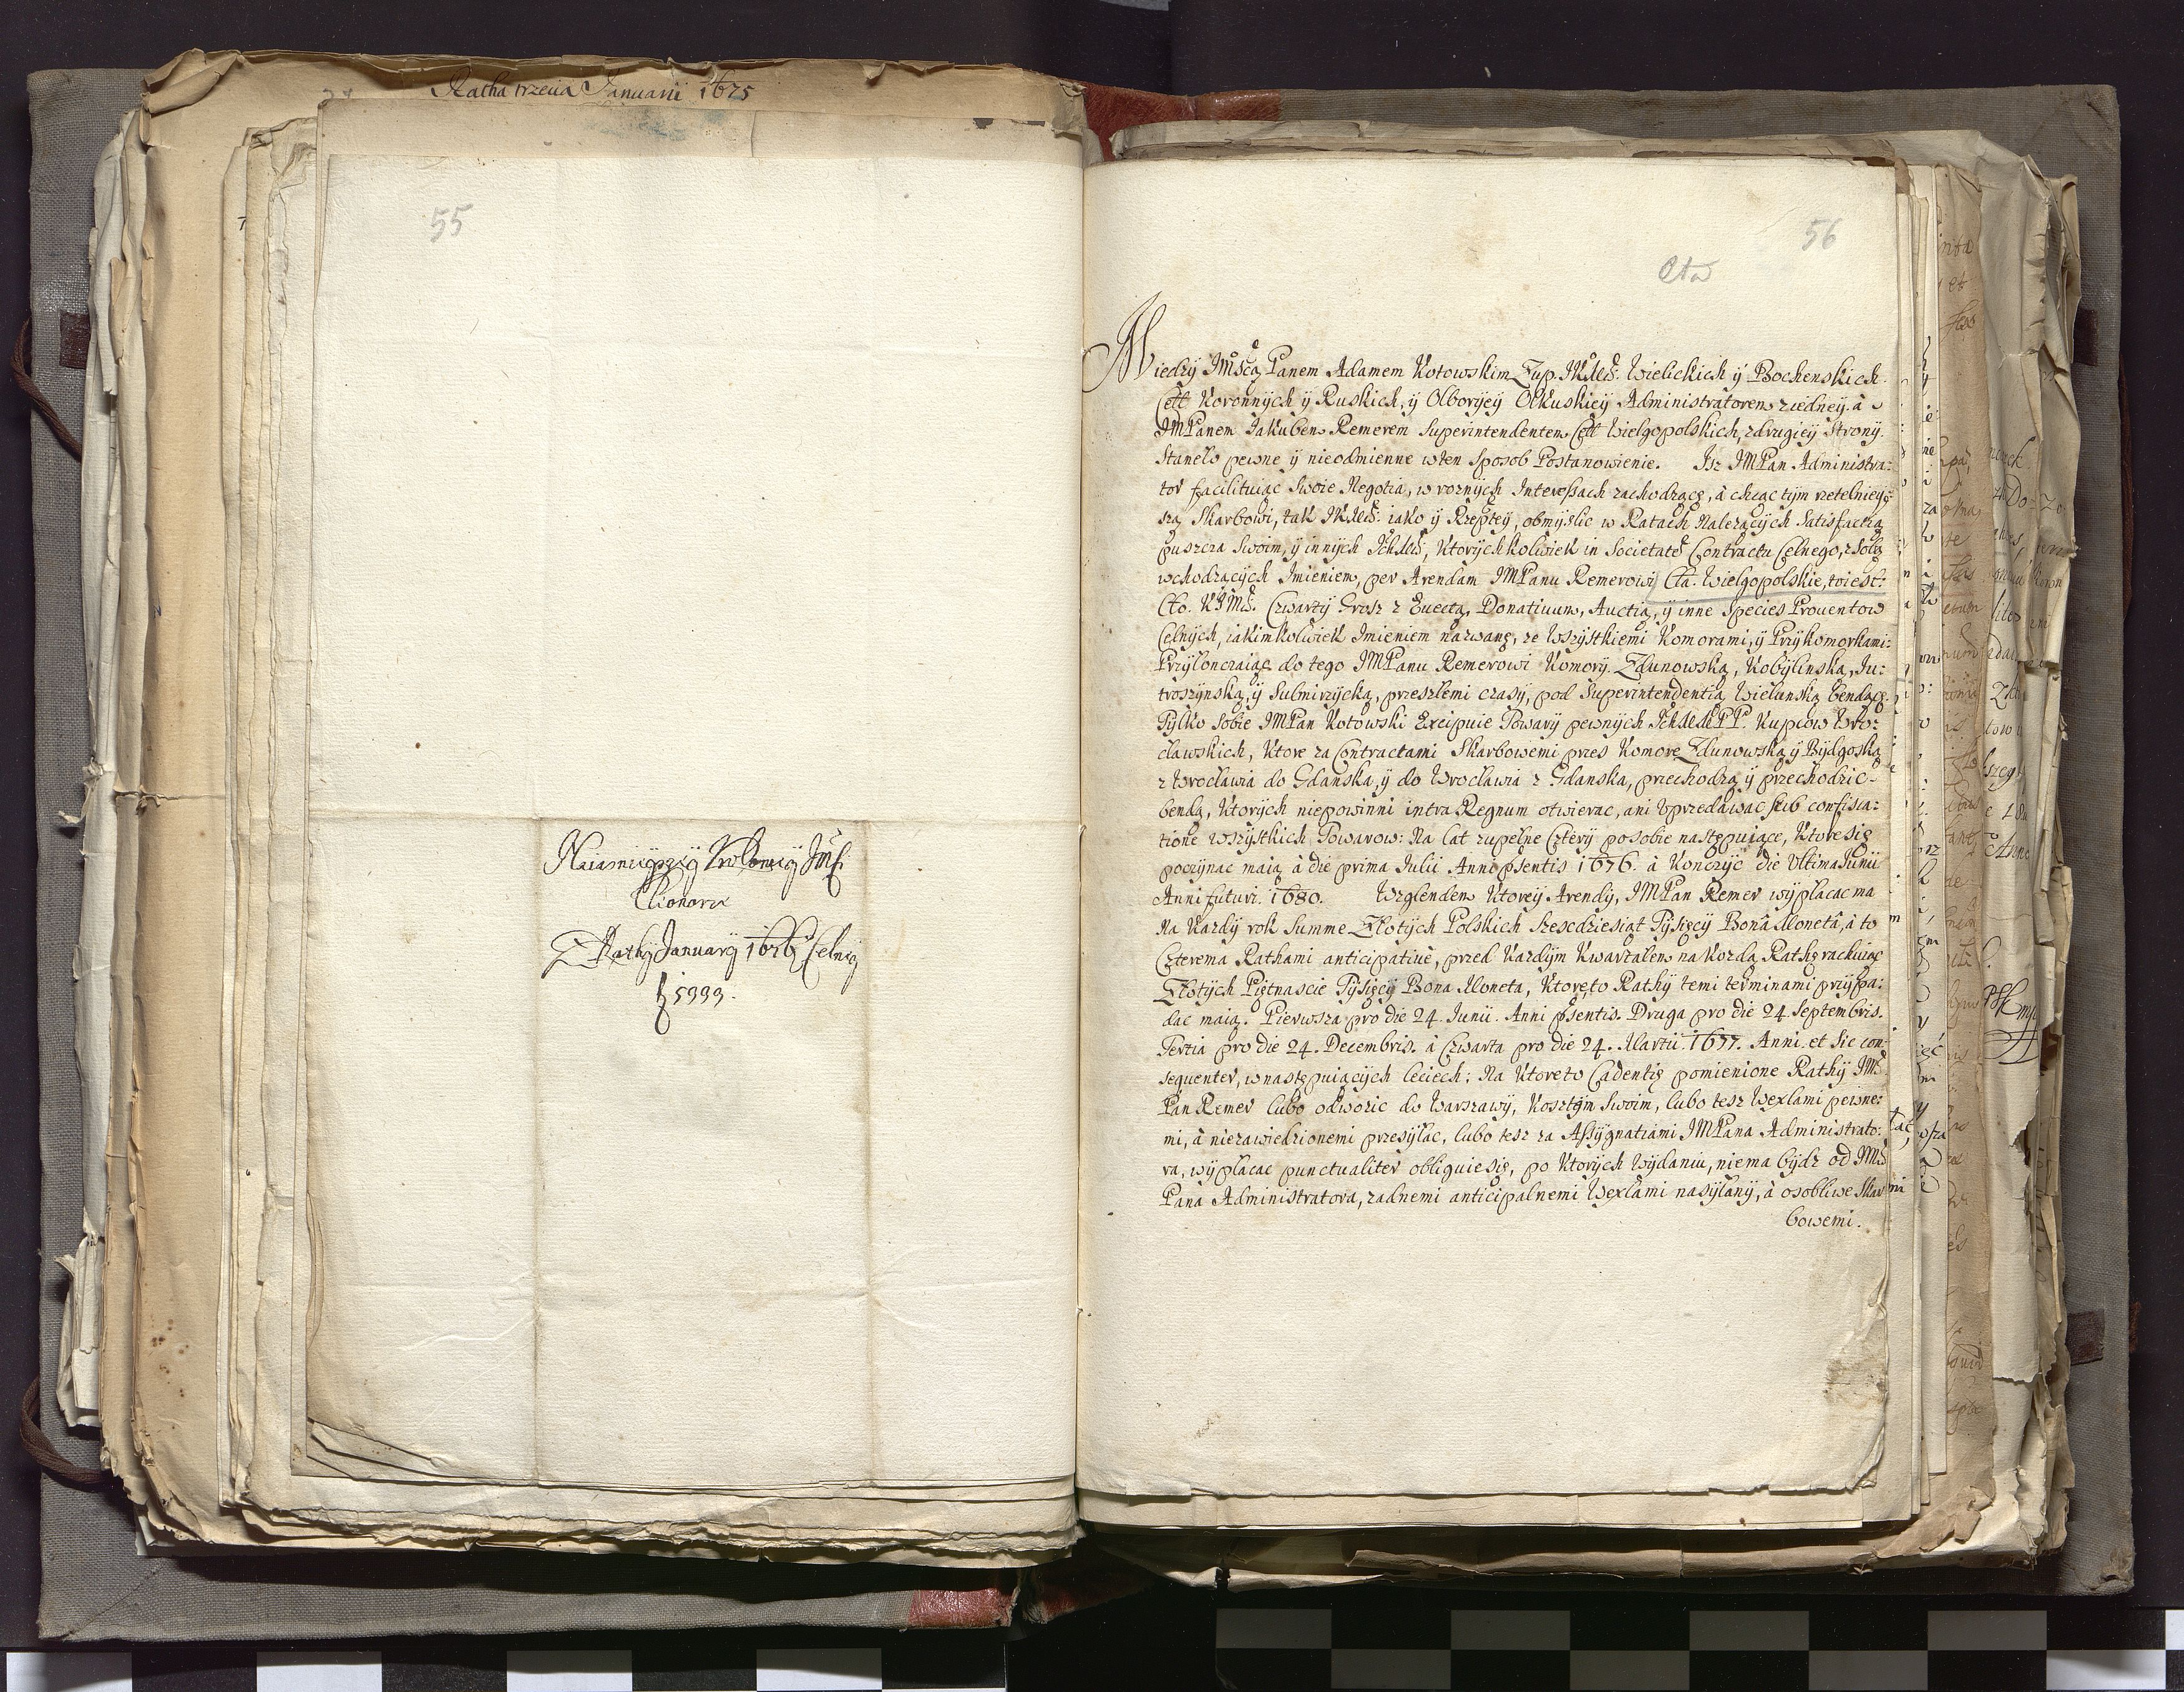 Ratha trzecia Januarii 1675
55
Naiasnieyszey Krolowey JMśc
Elionorze
Z Rathy January 1676 Celney
f 5999.
56
Cła
Miedzy JMścą Panem Adamem Kotowskim Zup. JKMśc. Wielickich ÿ Bochenskich.
Cell Koronnych ÿ Ruskich, ÿ Olboryey Olkuskiey Administratorem z iedney. à
JMPanem Jakubem Remerem Superintendentem Cell Wielgopolskich, z drugieÿ Stronÿ.
Staneło pewne ÿ nieodmienne w ten Sposob Postanowienie. Isz JMPan Administra:
tor facilituiąc Swoie Negotia, w roznÿch Interessach zachodzące, à chcąc tÿm rzetelnieÿ
szą Skarbowi, tak JKMśc. iako ÿ Rzeptey, obmyslic w Ratach Nalezącÿch Satisfactią
puszcza Swoim, ÿ innÿch Ichmśc, Ktorÿchkolwiek in Societatem Contractu Celnego, z Sobą
wchodzącÿch Imieniem, per Arendam JMPanu Remerowi Cła. Wielgopolskie, to iest:
Cło. KJMśc. Czwartÿ Grosz z Euectą, Donatiuum, Auctią, ÿ inne Species Prouentow
Celnÿch, iakimkolwiek Imieniem nazwane, ze Wszÿstkiemi Komorami, ÿ Przÿkomorkami:
Przÿlonczaiąc do tego JMPanu Remerowi Komorÿ. Zdunowską, Kobylinską, Ju:
troszÿnską, ÿ Sulmirzÿcką, przeszłemi czasÿ, pod Superintendentią Wielunską bendące.
Tÿlko Sobie JMPan Kotowski Excipuie Towarÿ pewnÿch Ichmść PP. Kupcow Wro:
cławskich, Ktore za Contractami Skarbowemi przes Komore Zdunowską ÿ Bÿdgoską
z Wrocławia do Gdanska, ÿ do Wrocławia z Gdanska, przechodzą ÿ przechodzic
bendą, Ktorÿch niepowinni intra Regnum otwierac, ani Vprzedawac sub confisca:
tione wszÿstkich Towarow: Na lat zupełne Czterÿ po sobie następuiące, Ktore się
poczÿnac maią à die prima Julii Anni psentis 1676. à Konczÿc die Vltima Junii
Anni futuri. 1680. Wzglendem Ktoreÿ Arendÿ, JMPan Remer wÿpłacac ma
Na Kazdÿ rok Summe Złotÿch Polskich Szescdziesiąt Tÿsięcÿ Bonâ Monetâ, à to
Czterema Rathami anticipatiue, przed Kazdÿm Kwartałem na Kozdą Rathę rachuiąc
Złotÿch Piętnascie Tÿsięcÿ Bona Moneta, Ktore to Rathÿ temi terminami przÿpa:
dac maią. Pierwsza pro die 24. Junii. Anni psentis. Druga pro die 24. Septembris.
Tertia pro die 24. Decembris. à Czwarta pro die 24. Martii. 1677. Anni. et Sic con:
sequenter, w następuiącÿch leciech; Na Ktore to Cadentię pomienione Rathÿ JMśc
Pan Remer lubo odwozic do Warszawÿ, Kosztem Swoim, lubo tesz Wexlami pewne:
mi, à niezawiedzionemi przesÿłac, lubo tesz za Assÿgnatiami JMPana Administrato:
ra, wÿpłacac punctualiter obliguie się, po Ktorÿch Wÿdaniu, niema bÿdz od JMśc
Pana Administratora, zadnemi anticipalnemi Wexlami nasÿłanÿ, à osobliwe Skar
bowemi.